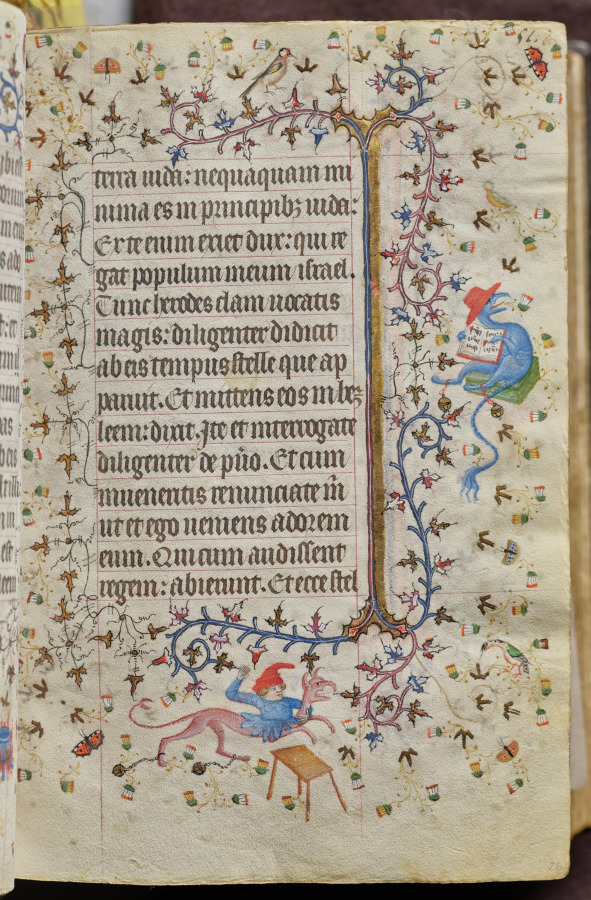 terra iuda: nequaquam mi
nima es in principibꝫ iuda:
Ex te enim exiet dux: qui re
gat populum meum israel.
Tunc herodes clam uocatis
magis: diligenter didicit
ab eis tempus stelle que ap
paruit. Et mittens eos in beꝫ
leem: dixit. Ite et interrogate
diligenter de pũo. Et cum
inueneritis renunciate m̃
ut et ego ueniens adorem
eum. Qui cum audissent
regem: abierunt. Et ecce stel